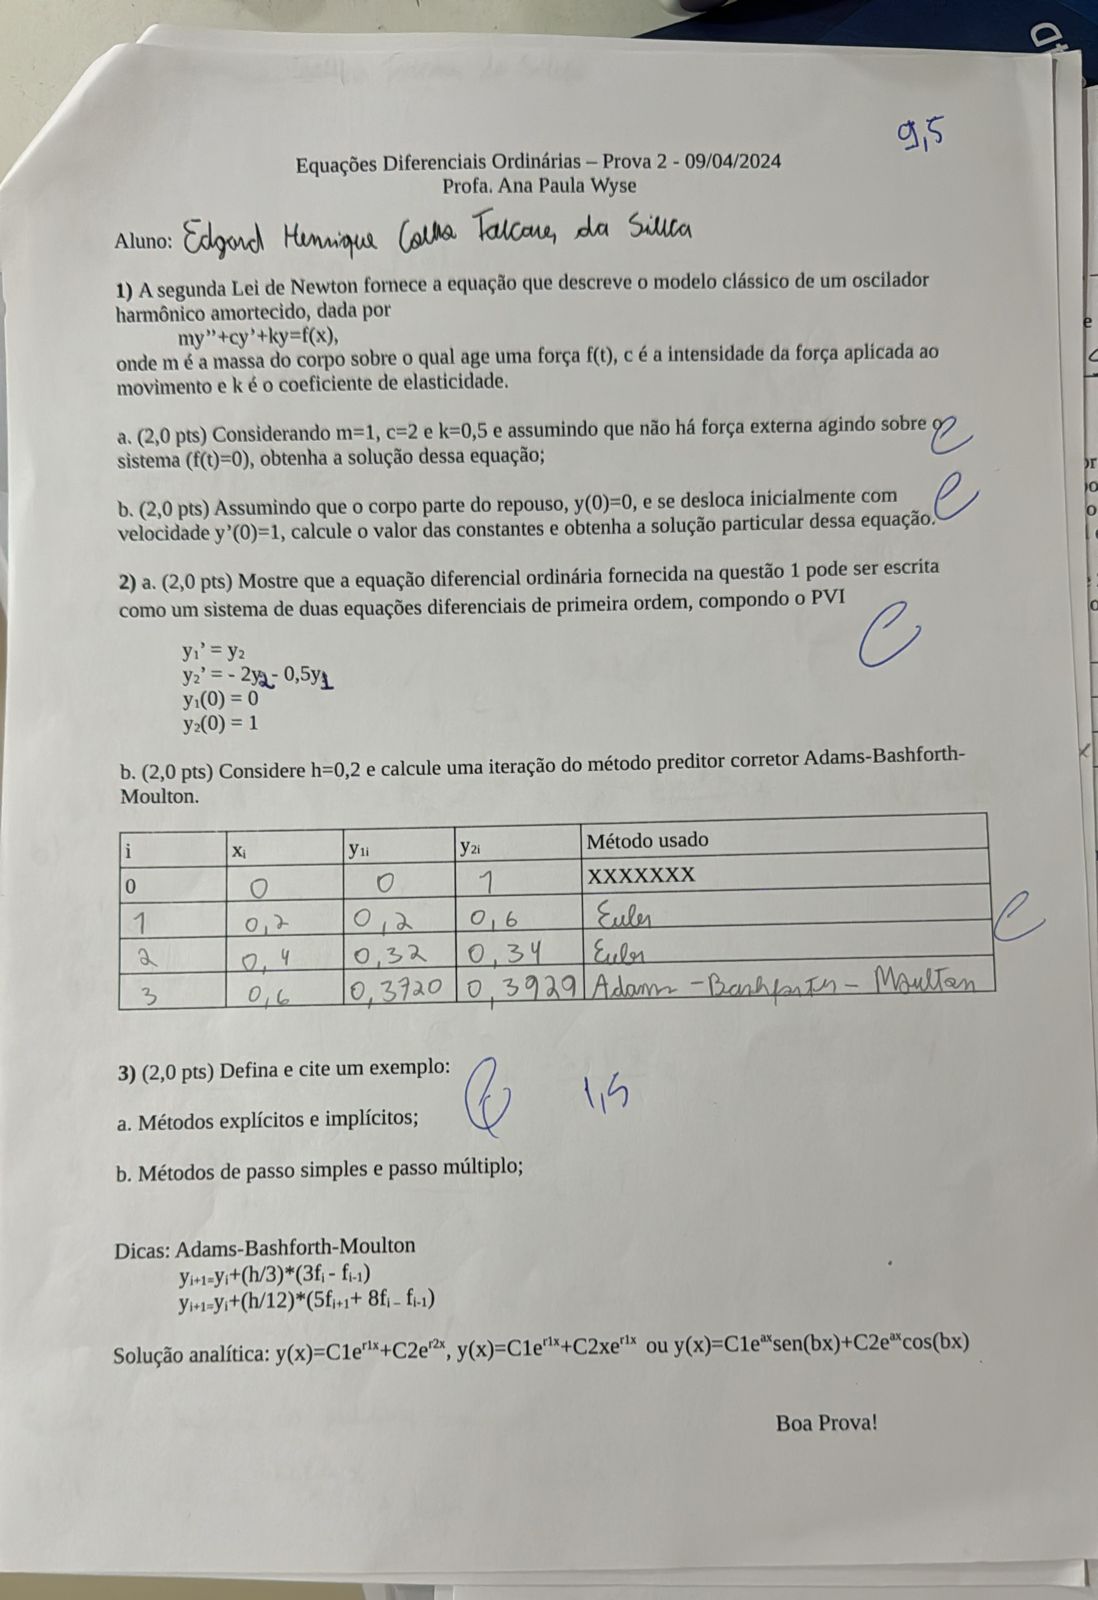 9,5
Equações Diferenciais Ordinárias – Prova 2 - 09/04/2024
Profa. Ana Paula Wyse
Aluno: Edgard Henrique da Silva
1) A segunda Lei de Newton fornece a equação que descreve o modelo clássico de um oscilador
harmônico amortecido, dada por
my”+cy’+ky=f(x),
onde m é a massa do corpo sobre o qual age uma força f(t), c é a intensidade da força aplicada ao
movimento e k é o coeficiente de elasticidade.
a. (2,0 pts) Considerando m=1, c=2 e k=0,5 e assumindo que não há força externa agindo sobre o
sistema (f(t)=0), obtenha a solução dessa equação;
b. (2,0 pts) Assumindo que o corpo parte do repouso, y(0)=0, e se desloca inicialmente com
velocidade y’(0)=1, calcule o valor das constantes e obtenha a solução particular dessa equação.
2) a. (2,0 pts) Mostre que a equação diferencial ordinária fornecida na questão 1 pode ser escrita
como um sistema de duas equações diferenciais de primeira ordem, compondo o PVI
y₁’ = y₂
y₂’ = - 2y₂ - 0,5y₁
y₁(0) = 0
y₂(0) = 1
b. (2,0 pts) Considere h=0,2 e calcule uma iteração do método preditor corretor Adams-Bashforth-
Moulton.
i xᵢ y₁ᵢ y₂ᵢ Método usado
0 0 0 1 XXXXXXX
1 0,2 0,2 0,6 Euler
2 0,4 0,32 0,34 Euler
3 0,6 0,3720 0,3929 Adams - Bashforth - Moulton
3) (2,0 pts) Defina e cite um exemplo:
1,5
a. Métodos explícitos e implícitos;
b. Métodos de passo simples e passo múltiplo;
Dicas: Adams-Bashforth-Moulton
yᵢ₊₁=yᵢ+(h/3)*(3fᵢ - fᵢ₋₁)
yᵢ₊₁=yᵢ+(h/12)*(5fᵢ₊₁+ 8fᵢ – fᵢ₋₁)
Solução analítica: y(x)=C1e^r1x+C2e^r2x, y(x)=C1e^r1x+C2xe^r1x ou y(x)=C1e^ax sen(bx)+C2e^ax cos(bx)
Boa Prova!